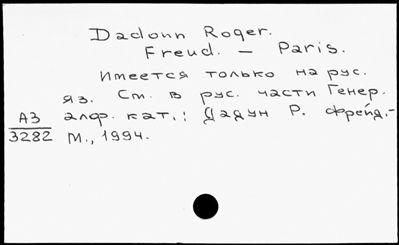 Dadoun Roger.
Freud. - Paris.
Имеется только на рус.
яз. См. в рус. части Генер.
АЗ алф. кат.: Дадун Р. Фрейд.-
3282 М., 1994.